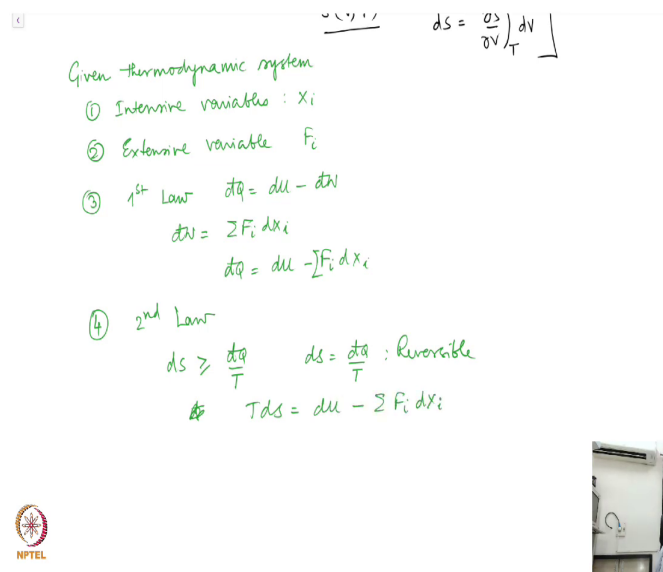 ds = ∂s/∂v)_T dv ]
Given thermodynamic system
① Intensive variables : xi
② Extensive variable Fi
③ 1st Law đQ = du − đW
đW = ΣFi dxi
đQ = du − ΣFi dxi
④ 2nd Law
ds ≥ đQ/T ds = đQ/T : Reversible
Tds = du − Σ Fi dxi
NPTEL